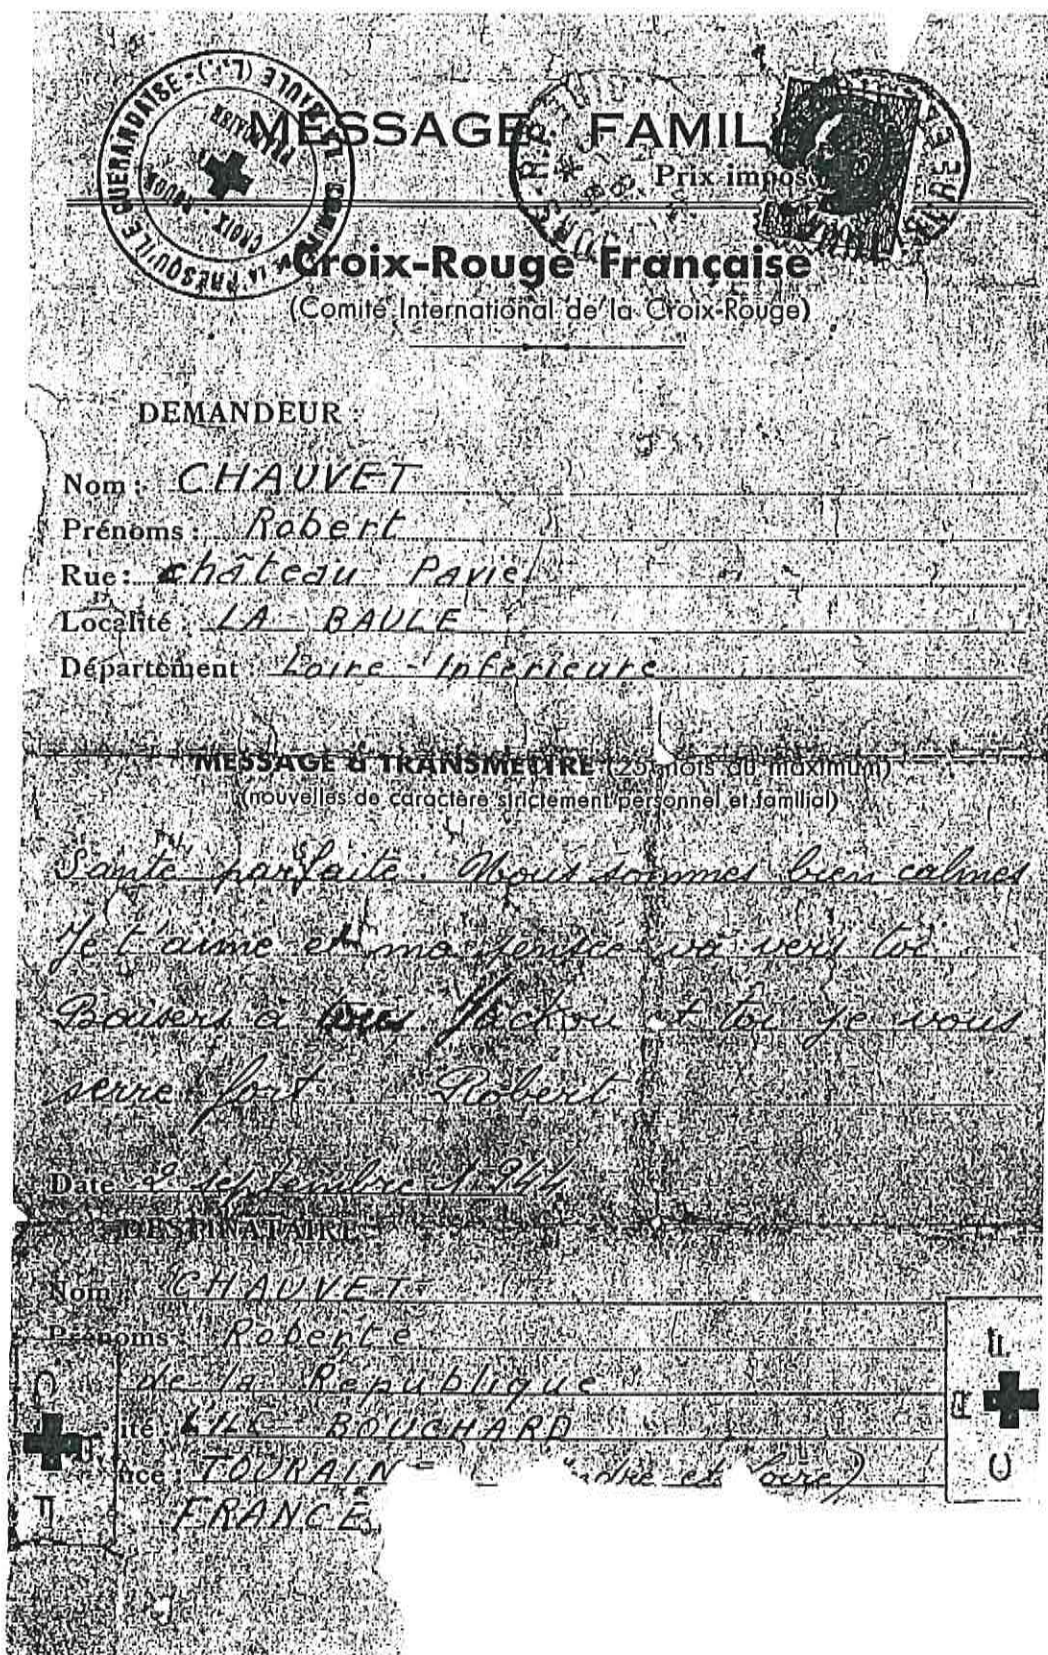 MESSAGE FAMIL
Prix impos
CROIX - ROUGE
Croix-Rouge Française
(Comité International de la Croix-Rouge)
DEMANDEUR
Nom : CHAUVET
Prénoms : Robert
Rue : château Pavie
Localité : LA BAULE
Département : Loire-Inférieure
MESSAGE à TRANSMETTRE (25 mots au maximum)
(nouvelles de caractère strictement personnel et familial)
Santé parfaite. Nous sommes bien calmes
Je t'aime et ma pensée va vers toi
Baisers à Jackou et toi je vous
serre fort Robert
Date 2 septembre 1944
DESTINATAIRE
Nom : CHAUVET
Prénoms : Roberte
de la République
ité : L'ILE BOUCHARD
nce : TOURAINE ndre et Loire)
FRANCE